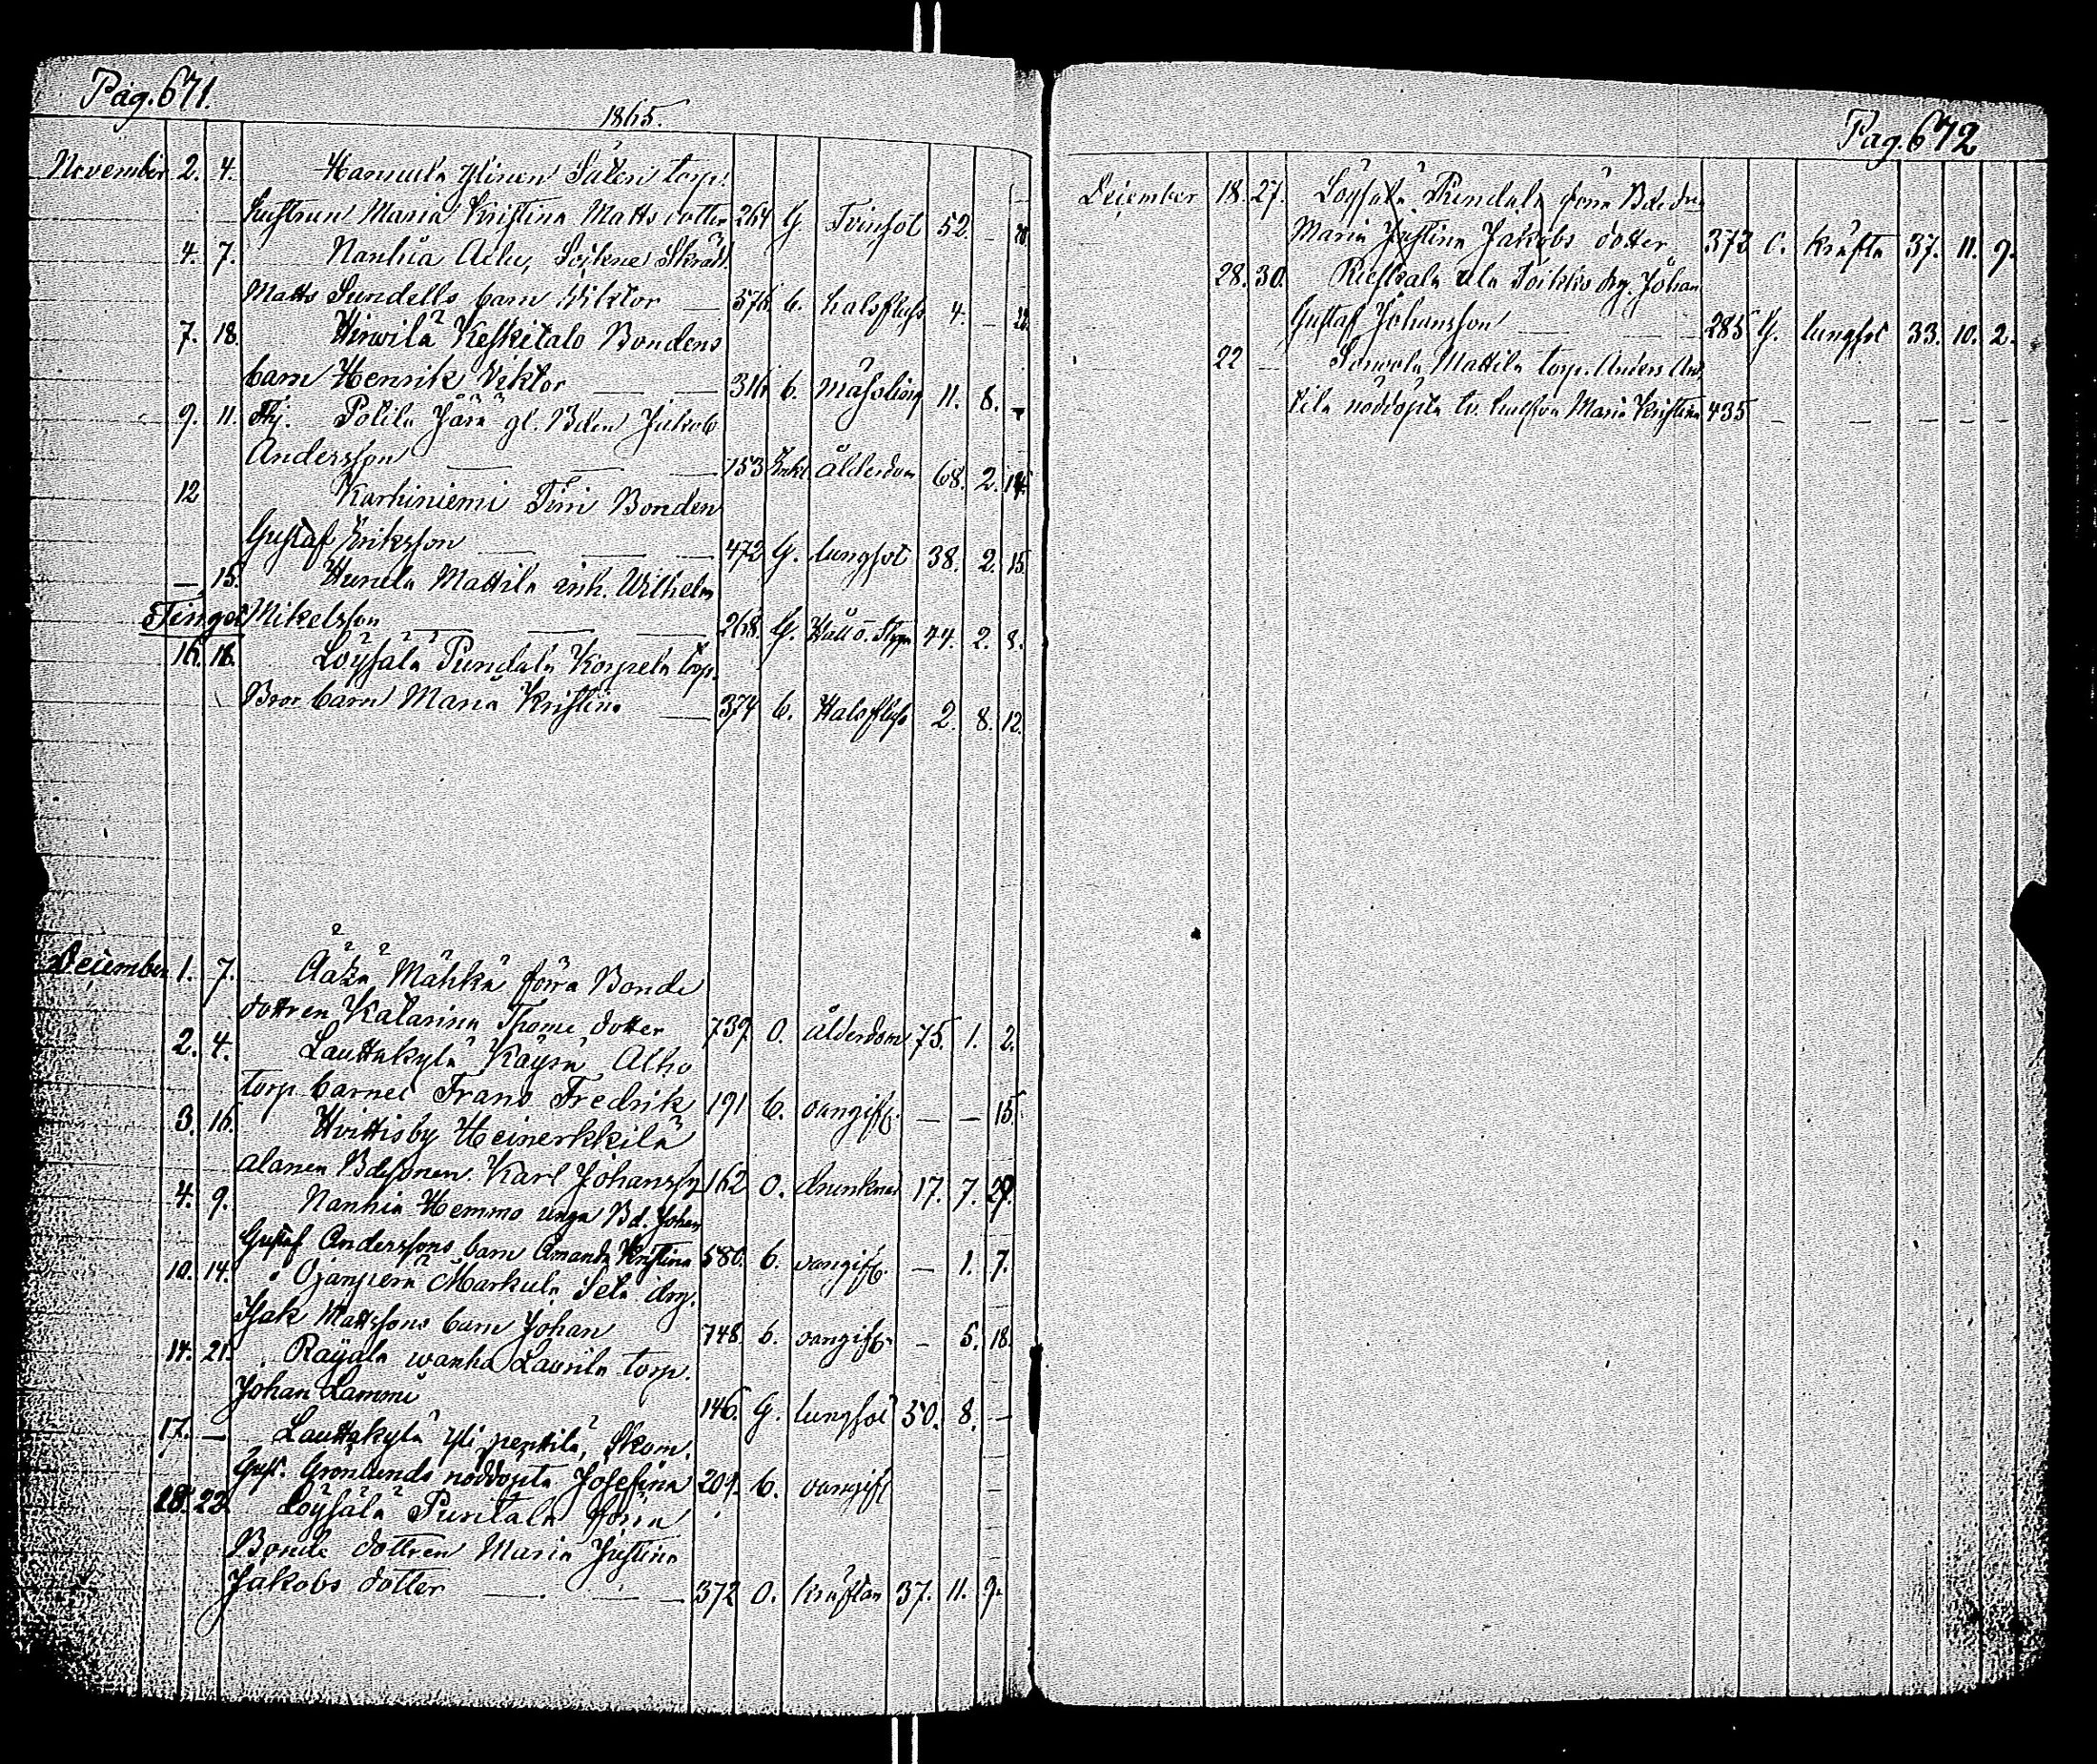 Pag. 671.
1865.
November 2. 4. Hannula Ylinen Salen torp.
hustrun Maria Kristina Matts dotter 264 G. Tvinsot 52. —
4. 7. Nanhia Ache, Sokne Skrädd.
Matts Sundells barn Viktor — 576. b. halsfluss 4. —
7. 18. Hirwilä Keskitalo Bondens
barn Henrik Viktor — — 316. b. mässling 11. 8.
9. 11. Thj. Potila Järä gl. Bden Jakob
Andersson — — — 153 Enkl. ålderdom 68. 2. 14.
12 Karhiniemi Timi Bonden
Gustaf Eriksson — — — 472 G. lungsot 38. 2. 15.
— 15. Hunila Mattila inh. Wilhelm
Tinget Mikelsson — — — 268. G. Håll o. Stygn 44. 2. 8.
16. 18. Löysälä Pundala Korpela torp.
Bror barn Maria Kristina — 374 b. Halsfluss 2. 8. 12.
December 1. 7. Mahkä förra Bonde
dottren Katarina Thome dotter 739. O. ålderdom 75. 1. 2.
2. 4. Lauttakylä Käyrä Alho
torp. barnet Frans Fredrik 191 b. oangift. — — 15.
3. 16. Hvittisby Heinerkkilä
alanen Bdesonen Karl Johansson 162 O. drunknad 17. 7. 29.
4. 9. Nanhia Hemmo unga Bd. Johan
Gustaf Anderssons barn Amanda Kristina 580. b. oangift. — 1. 7.
10. 14. Ojanperä Markula Selä drg.
Isak Mattssons barn Johan 748. b. oangift. — 5. 18.
14. 21. Raijala wanha Laurila torp.
Johan Lammi 146. G. lungsot 50. 8. —
17. — Lauttakylä Yli penttilä, Skom.
Gust. Grönlunds nöddöpta Josefina 209. b. oangift
18. 22. Löysälä Puntala förra
Bonde dottren Maria Justina
Jakobs dotter — — — 372 O. kräftan 37. 11. 9.
Pag. 672
December 18. 27. Löysälä Pundala förra Bdedrn
Maria Justina Jakobs dotter 372 O. kräfta 37. 11. 9.
28. 30. Rieskala ala Toikko drg. Johan
Gustaf Johansson — 285 G. lungsot 33. 10. 2.
22 — Suwela Mattila torp. Anders
tila nöddöpta Maria Kristina 435 — — — — —